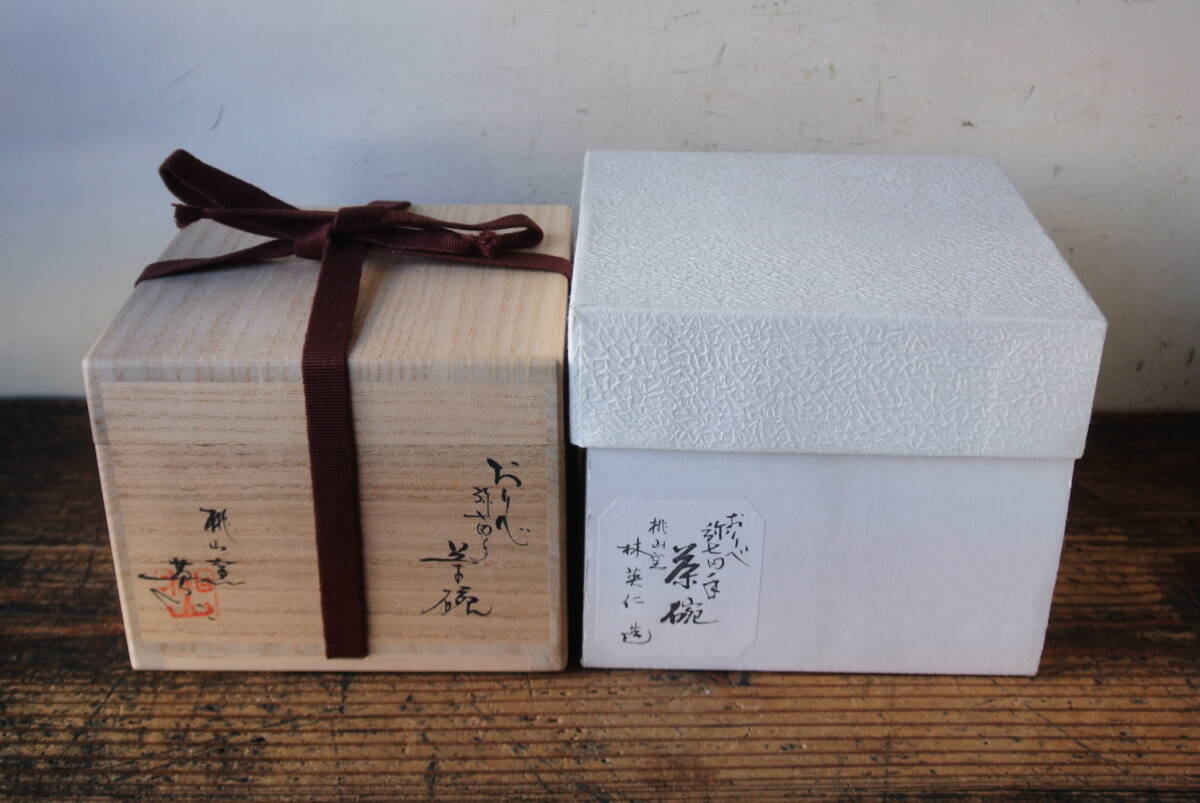 おりべ
弥七田手
茶碗
桃山窯
英仁
桃山
おりべ
弥七田手
茶碗
桃山窯
林英仁造